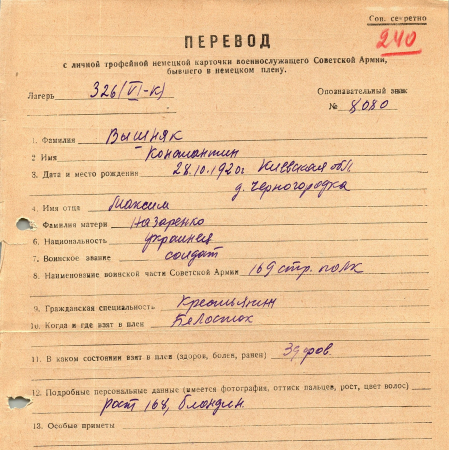 Сов. секретно
240
ПЕРЕВОД
с личной трофейной немецкой карточки военнослужащего Советской Армии,
бывшего в немецком плену.
Лагерь 326 (VI-К) Опознавательный знак
№ 8080
1. Фамилия Вышняк
2 Имя Константин
3. Дата и место рождения 28.10.1920г. Киевская обл.
д. Черногородка
4. Имя отца Максим
Фамилия матери Назаренко
6. Национальность украинец
7. Воинское звание солдат
8. Наименование воинской части Советской Армии 169 стр. полк
9. Гражданская специальность Крестьянин
10. Когда и где взят в плен Белосток
11. В каком состоянии взят в плен (здоров, болен, ранен) Здоров.
12. Подробные персональные данные (имеется фотография, оттиск пальцев, рост, цвет волос)
рост 168, блондин.
13. Особые приметы